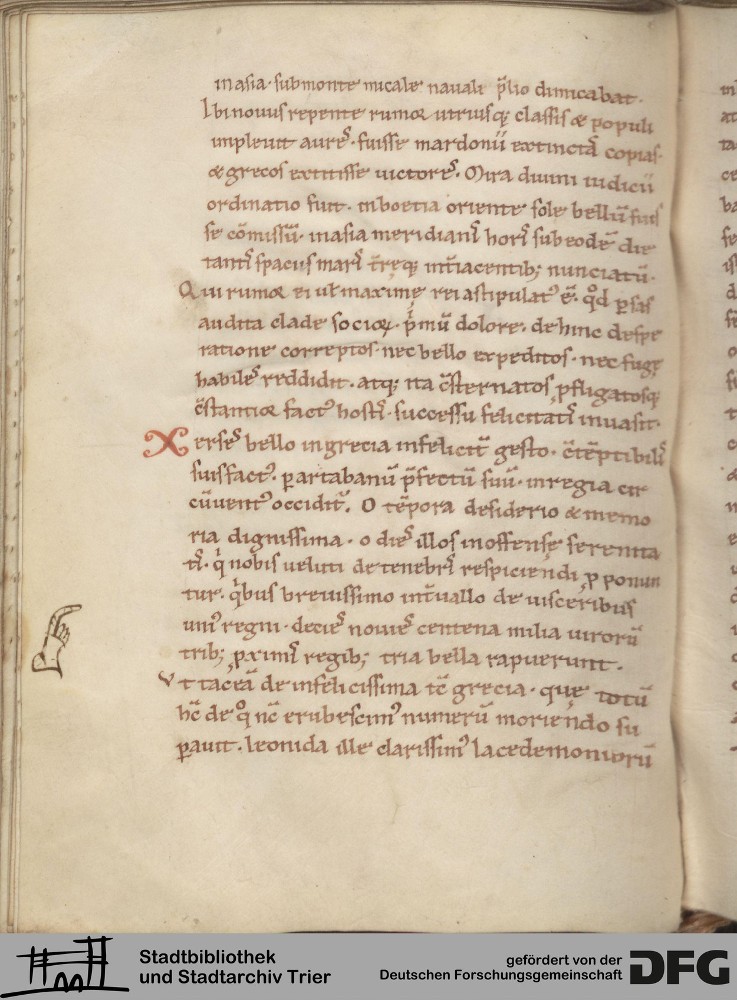 in asia · sub monte micale nauali p̄lio dimicabat ·
Ibi nouus repente rumor utriusq; classis & populi
impleuit aures · fuisse mardonii extinctā copias ·
& grecos extitisse uictores · Mira diuini iudicii
ordinatio fuit · in boetia oriente sole bellū fuis
se cōmissū · in asia meridianis horis sub eodē die
tantis spaciis maris t̄req; int̄iacentib; nunciatū ·
Qui rumor ei uł maxime rei astipulatꝰ ē · qđ persas
audita clade socioꝝ · p̄mū dolore · dehinc despe
ratione correptos · nec bello expeditos · nec fuge
habiles reddidit · atq; ita c̄sternatos, pfligatosq;
c̄stantior factꝰ hostis · successu felicitatis inuasit ·
Xerses bello in grecia infelicit̄ gesto · c̄tēptibilis
suis factꝰ · ꝑ artabanū p̄fectū suū · in regia cir
cūuentꝰ occidit̄ · O tēpora desiderio & memo
ria dignissima · o dies illos inoffense serenita
tis · qͥ nobis ueluti de tenebris respiciendi ꝓponun
tur · qͥbus breuissimo int̄uallo de uisceribus
uniꝰ regni · decies nouies centena milia uirorū
trib; ꝓximis regib; tria bella rapuerunt ·
Vt taceā de infelicissima tc̄ grecia · que totū
hc̄ de qͦ nc̄ erubescimꝰ numerū moriendo su
ꝑauit · leonida ille clarissimꝰ lacedemoniorū
Stadtbibliothek
und Stadtarchiv Trier
gefördert von der
Deutschen Forschungsgemeinschaft
DFG